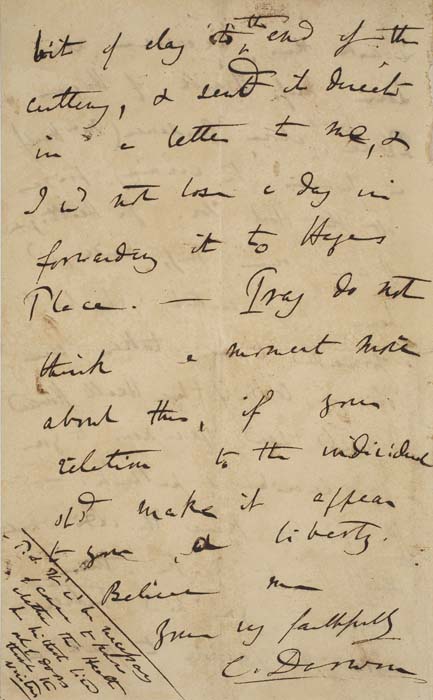 bit of clay to the end of the
cutting, & send it direct
in a letter to me, &
I wd not lose a day in
forwarding it to Hayes
Place. — Pray do not
think a moment more
about this, if your
relation to the individual
shd make it appear
to you a liberty.
Believe me
Yours very faithfully
C. Darwin
P.S. It is be necessary
of course to
whether the Heath